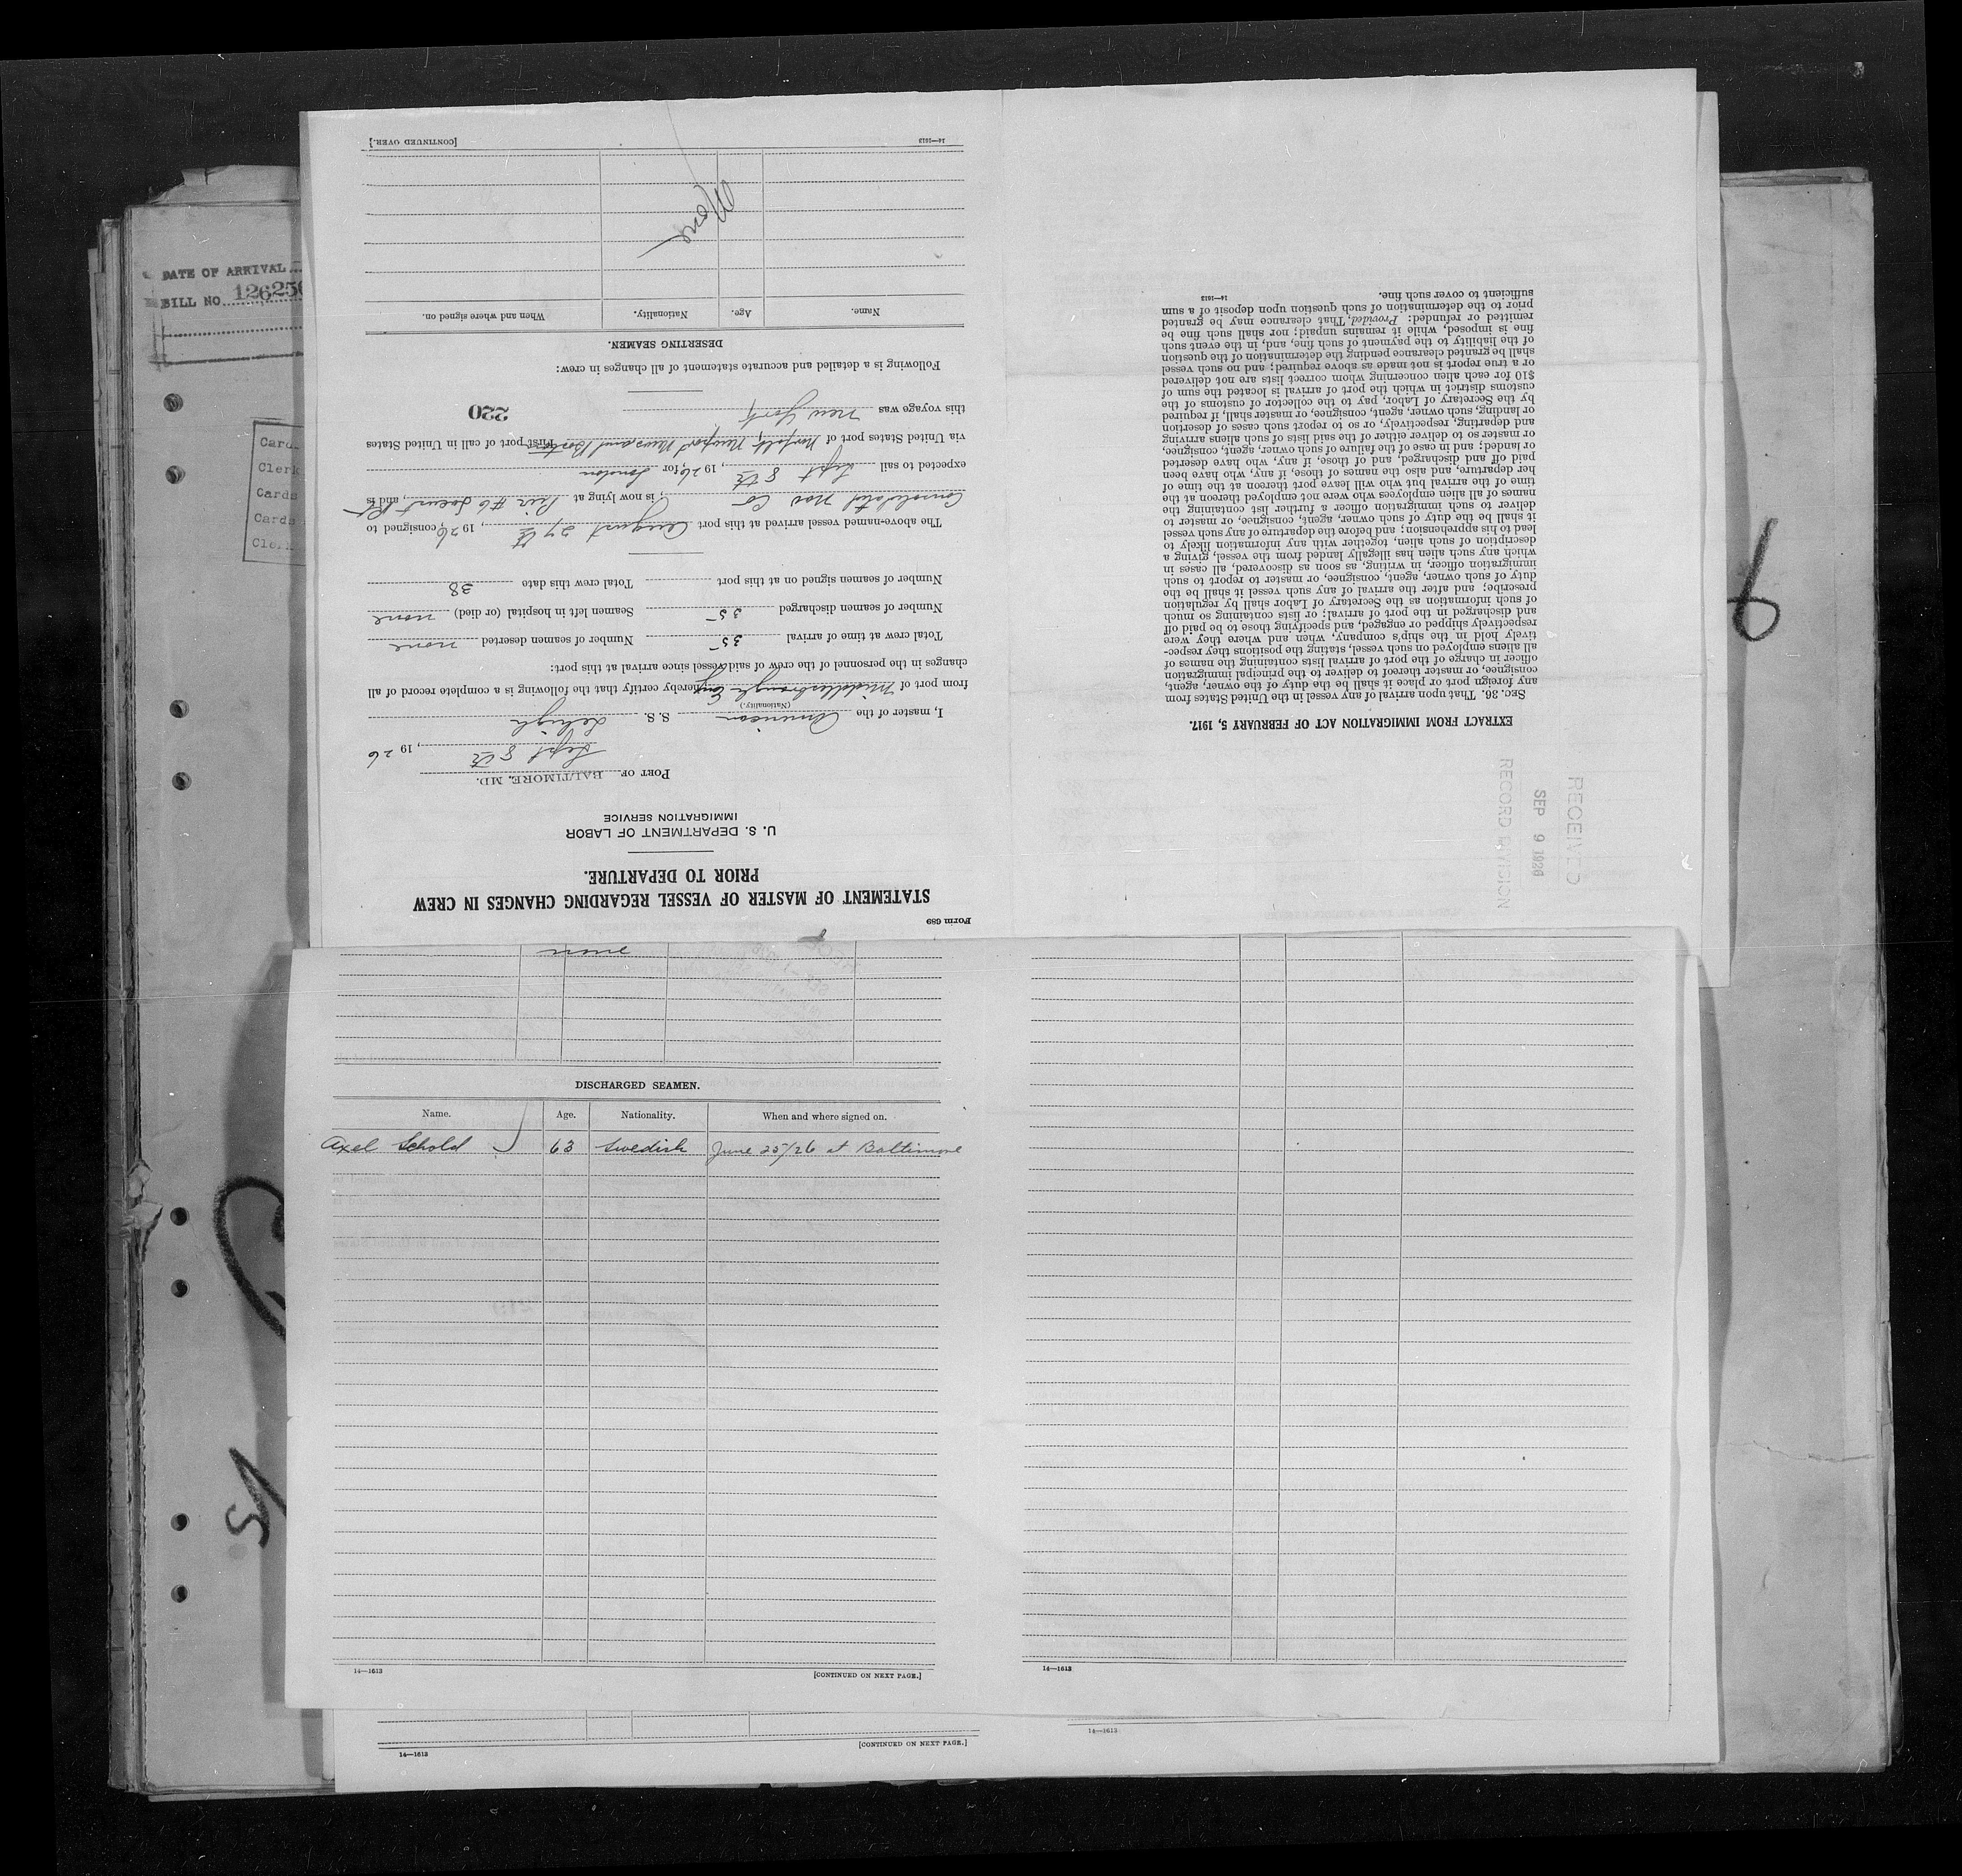 DATE OF ARRIVAL
BILL NO 126250
Card
Clerk
Cards
Cards
Cler
Form 689
STATEMENT OF MASTER OF VESSEL REGARDING CHANGES IN CREW
PRIOR TO DEPARTURE.
U. S. DEPARTMENT OF LABOR
IMMIGRATION SERVICE
PORT OF BALTIMORE, MD.
Sept 8th, 1926
I, master of the American S. S. Lehigh
(Nationality.)
from port of Middlesbrough Eng hereby certify that the following is a complete record of all
changes in the personnel of the crew of said vessel since arrival at this port:
Total crew at time of arrival 35 Number of seamen deserted none
Number of seamen discharged 35 Seamen left in hospital (or died) none
Number of seamen signed on at this port Total crew this date 38
The above-named vessel arrived at this port August 27th, 1926, consigned to
Consolidated Nav Co, is now lying at Pier #6 Locust Pt, and is
expected to sail Sept 8th, 1926, for London
via United States port of Norfolk, Newport News and Boston First port of call in United States
this voyage was New York
220
Following is a detailed and accurate statement of all changes in crew:
DESERTING SEAMEN.
Name. Age. Nationality. When and where signed on.
None
14—1613 [CONTINUED OVER.]
RECEIVED
SEP 9 1926
RECORD DIVISION
EXTRACT FROM IMMIGRATION ACT OF FEBRUARY 5, 1917.
SEC. 36. That upon arrival of any vessel in the United States from
any foreign port or place it shall be the duty of the owner, agent,
consignee, or master thereof to deliver to the principal immigration
officer in charge of the port of arrival lists containing the names of
all aliens employed on such vessel, stating the positions they respec-
tively hold in the ship's company, when and where they were
respectively shipped or engaged, and specifying those to be paid off
and discharged in the port of arrival; or lists containing so much
of such information as the Secretary of Labor shall by regulation
prescribe; and after the arrival of any such vessel it shall be the
duty of such owner, agent, consignee, or master to report to such
immigration officer, in writing, as soon as discovered, all cases in
which any such alien has illegally landed from the vessel, giving a
description of such alien, together with any information likely to
lead to his apprehension; and before the departure of any such vessel
it shall be the duty of such owner, agent, consignee, or master to
deliver to such immigration officer a further list containing the
names of all alien employees who were not employed thereon at the
time of the arrival but who will leave port thereon at the time of
her departure, and also the names of those, if any, who have been
paid off and discharged, and of those, if any, who have deserted
or landed; and in case of the failure of such owner, agent, consignee,
or master so to deliver either of the said lists of such aliens arriving
and departing, respectively, or so to report such cases of desertion
or landing, such owner, agent, consignee, or master shall, if required
by the Secretary of Labor, pay to the collector of customs of the
customs district in which the port of arrival is located the sum of
$10 for each alien concerning whom correct lists are not delivered
or a true report is not made as above required; and no such vessel
shall be granted clearance pending the determination of the question
of the liability to the payment of such fine, and, in the event such
fine is imposed, while it remains unpaid; nor shall such fine be
remitted or refunded: Provided, That clearance may be granted
prior to the determination of such question upon deposit of a sum
sufficient to cover such fine.
14—1613
none
DISCHARGED SEAMEN.
Name. Age. Nationality. When and where signed on.
Axel Schold 63 Swedish June 25/26 at Baltimore
14—1613 [CONTINUED ON NEXT PAGE.]
14—1613
14—1613 [CONTINUED ON NEXT PAGE.]
14—1613